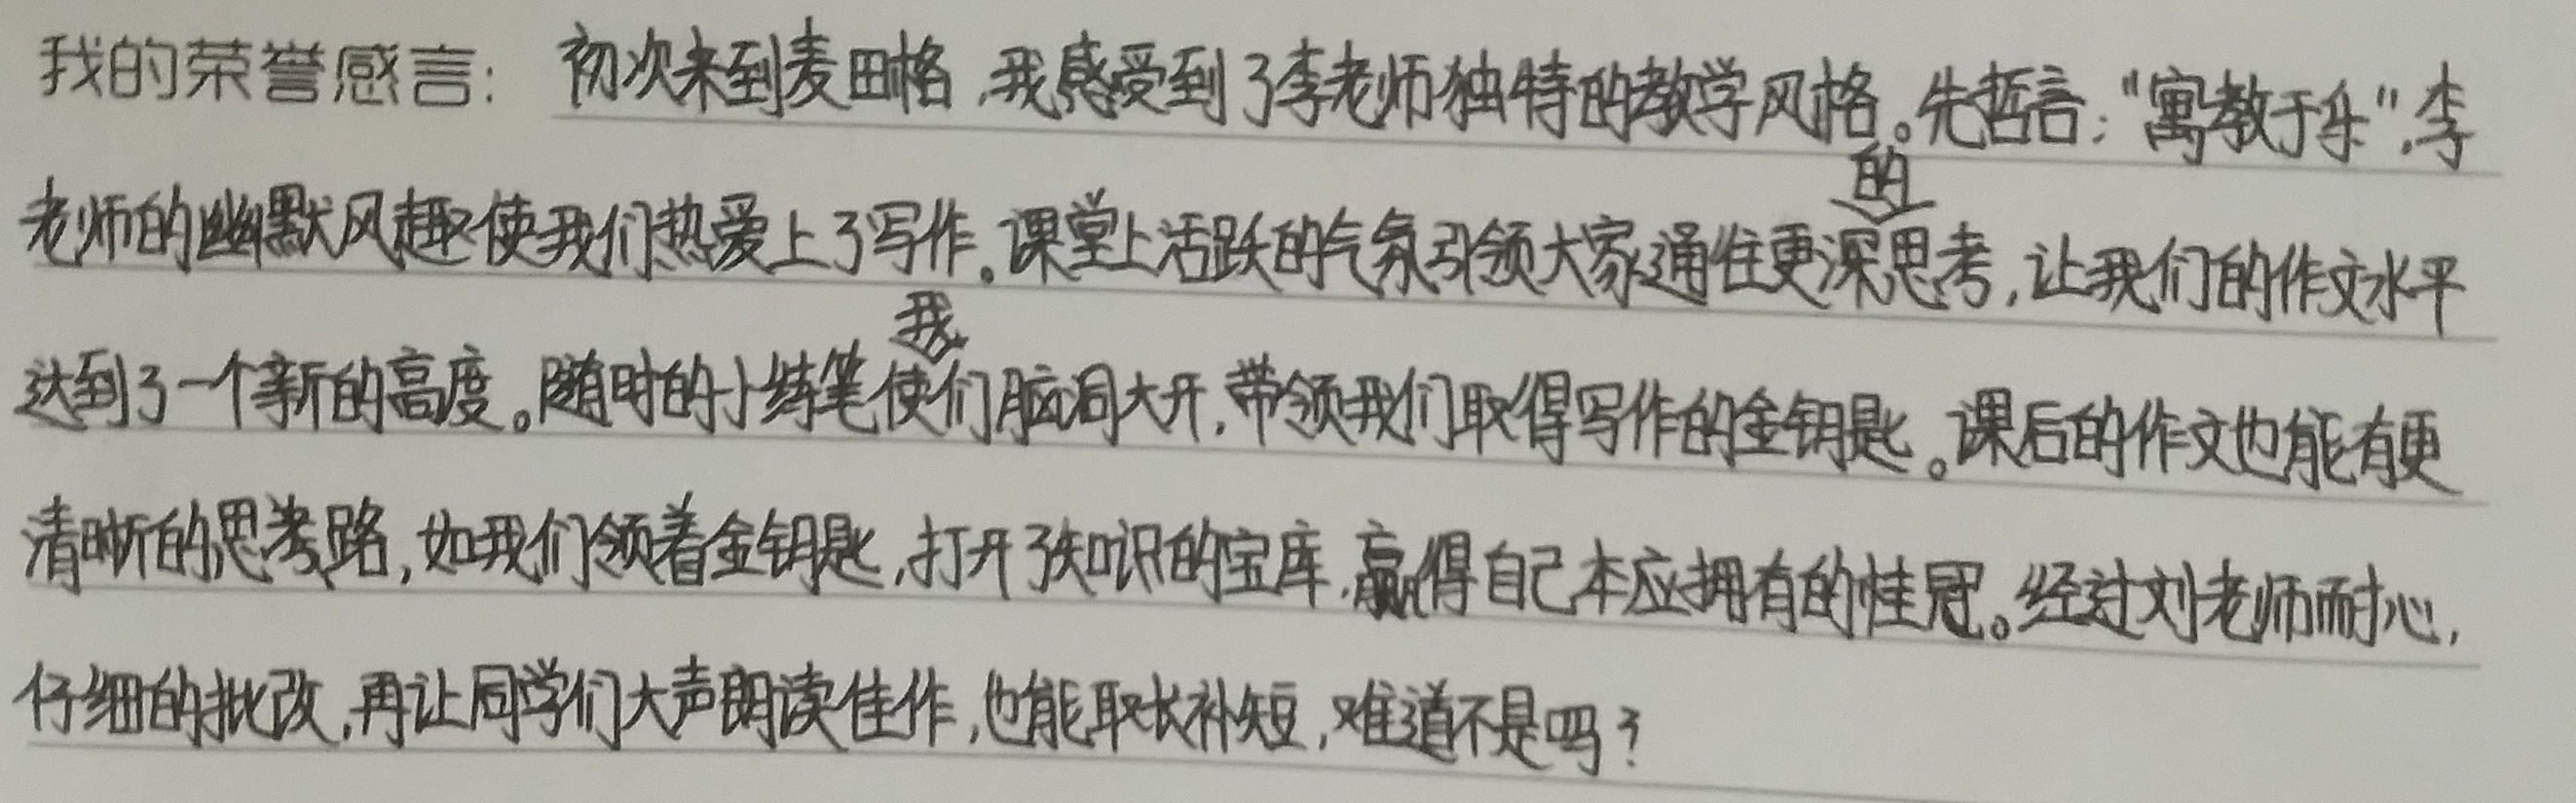 我的荣誉感言：初次来到麦田格，我感受到了李老师独特的教学风格。先哲言：“寓教于乐”，李
老师的幽默风趣使我们热爱上了写作。课堂上活跃的气氛引领大家通往更深的思考，让我们的作文水平
达到了一个新的高度。随时的小练笔使我们脑洞大开，带领我们取得写作的金钥匙。课后的作文也能有更
清晰的思考路，如我们领着金钥匙，打开了知识的宝库，赢得自己本应拥有的桂冠。经过刘老师耐心，
仔细的批改，再让同学们大声朗读佳作，也能取长补短，难道不是吗？